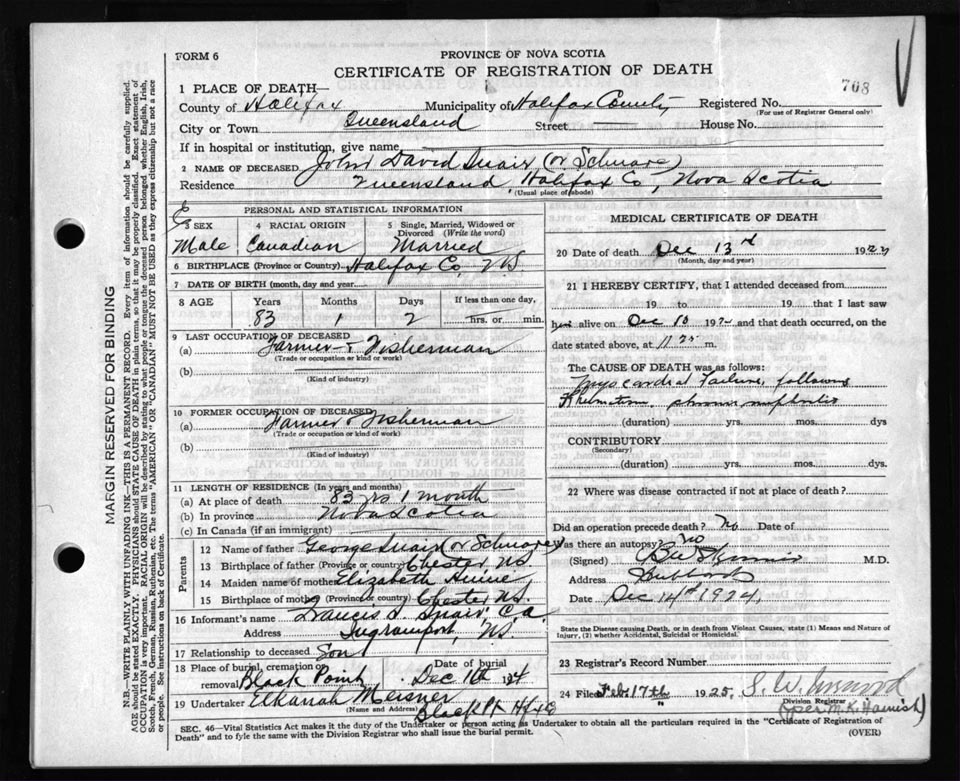 FORM 6
PROVINCE OF NOVA SCOTIA
CERTIFICATE OF REGISTRATION OF DEATH
708
1 PLACE OF DEATH—
County of Halifax Municipality of Halifax County Registered No.
(For use of Registrar General only)
City or Town Queensland Street House No.
If in hospital or institution, give name
2 NAME OF DECEASED John David Snair (or Schnare)
Residence Queensland, Halifax Co, Nova Scotia
(Usual place of abode)
PERSONAL AND STATISTICAL INFORMATION
3 SEX 4 RACIAL ORIGIN 5 Single, Married, Widowed or Divorced (Write the word)
Male Canadian Married
6 BIRTHPLACE (Province or Country) Halifax Co. N.S
7 DATE OF BIRTH (month, day and year)
8 AGE Years Months Days If less than one day,
83 1 2 hrs. or min.
9 LAST OCCUPATION OF DECEASED
(a) Farmer & Fisherman
(Trade or occupation or kind of work)
(b)
(Kind of industry)
10 FORMER OCCUPATION OF DECEASED
(a) Farmer & Fisherman
(Trade or occupation or kind of work)
(b)
(Kind of industry)
11 LENGTH OF RESIDENCE (In years and months)
(a) At place of death 83 yrs 1 month
(b) In province Nova Scotia
(c) In Canada (if an immigrant)
Parents
12 Name of father George Snair (or Schnare)
13 Birthplace of father (Province or Country) Chester N.S
14 Maiden name of mother Elizabeth
15 Birthplace of mother (Province or Country) Chester N.S.
16 Informant's name Francis Snair, C.A.
Address Ingramport, N.S
17 Relationship to deceased Son
18 Place of burial, cremation or removal Black Point Date of burial Dec 16th 24
19 Undertaker Elkanah Meisner
(Name and Address) Black Pt Hfx Co
MEDICAL CERTIFICATE OF DEATH
20 Date of death Dec 13rd 1924
(Month, day and year)
21 I HEREBY CERTIFY, that I attended deceased from
19 to 19 that I last saw
him alive on Dec 10 1924 and that death occurred, on the
date stated above, at 11 25 m.
The CAUSE OF DEATH was as follows:
Myocardial Failure, following
Rheumatism, chronic nephritis
(duration) yrs. mos. dys
CONTRIBUTORY
(Secondary)
(duration) yrs. mos. dys.
22 Where was disease contracted if not at place of death?
Did an operation precede death? No Date of
Was there an autopsy? No
(Signed) M.D.
Address Hubbards
Date Dec 14th 1924
State the Disease causing Death, or in death from Violent Causes, state (1) Means and Nature of
Injury, (2) whether Accidental, Suicidal or Homicidal.
23 Registrar's Record Number
24 Filed Feb 17th 1925. S. W.
Division Registrar
(per M.K. Harnish)
SEC. 46—Vital Statistics Act makes it the duty of the Undertaker or person acting as Undertaker to obtain all the particulars required in the "Certificate of Registration of
Death" and to fyle the same with the Division Registrar who shall issue the burial permit.
(OVER)
MARGIN RESERVED FOR BINDING
N.B.—WRITE PLAINLY WITH UNFADING INK—THIS IS A PERMANENT RECORD. Every item of information should be carefully supplied.
AGE should be stated EXACTLY. PHYSICIANS should STATE CAUSE OF DEATH in plain terms, so that it may be properly classified. Exact statement of
OCCUPATION is very important. RACIAL ORIGIN will be described by stating to what people or tongue the deceased person belonged, whether English, Irish,
Scotch, French, German, Russian, Ruthenian, etc. The terms "AMERICAN" or "CANADIAN" MUST NOT BE USED as they express citizenship but not a race
or people. See instructions on back of Certificate.